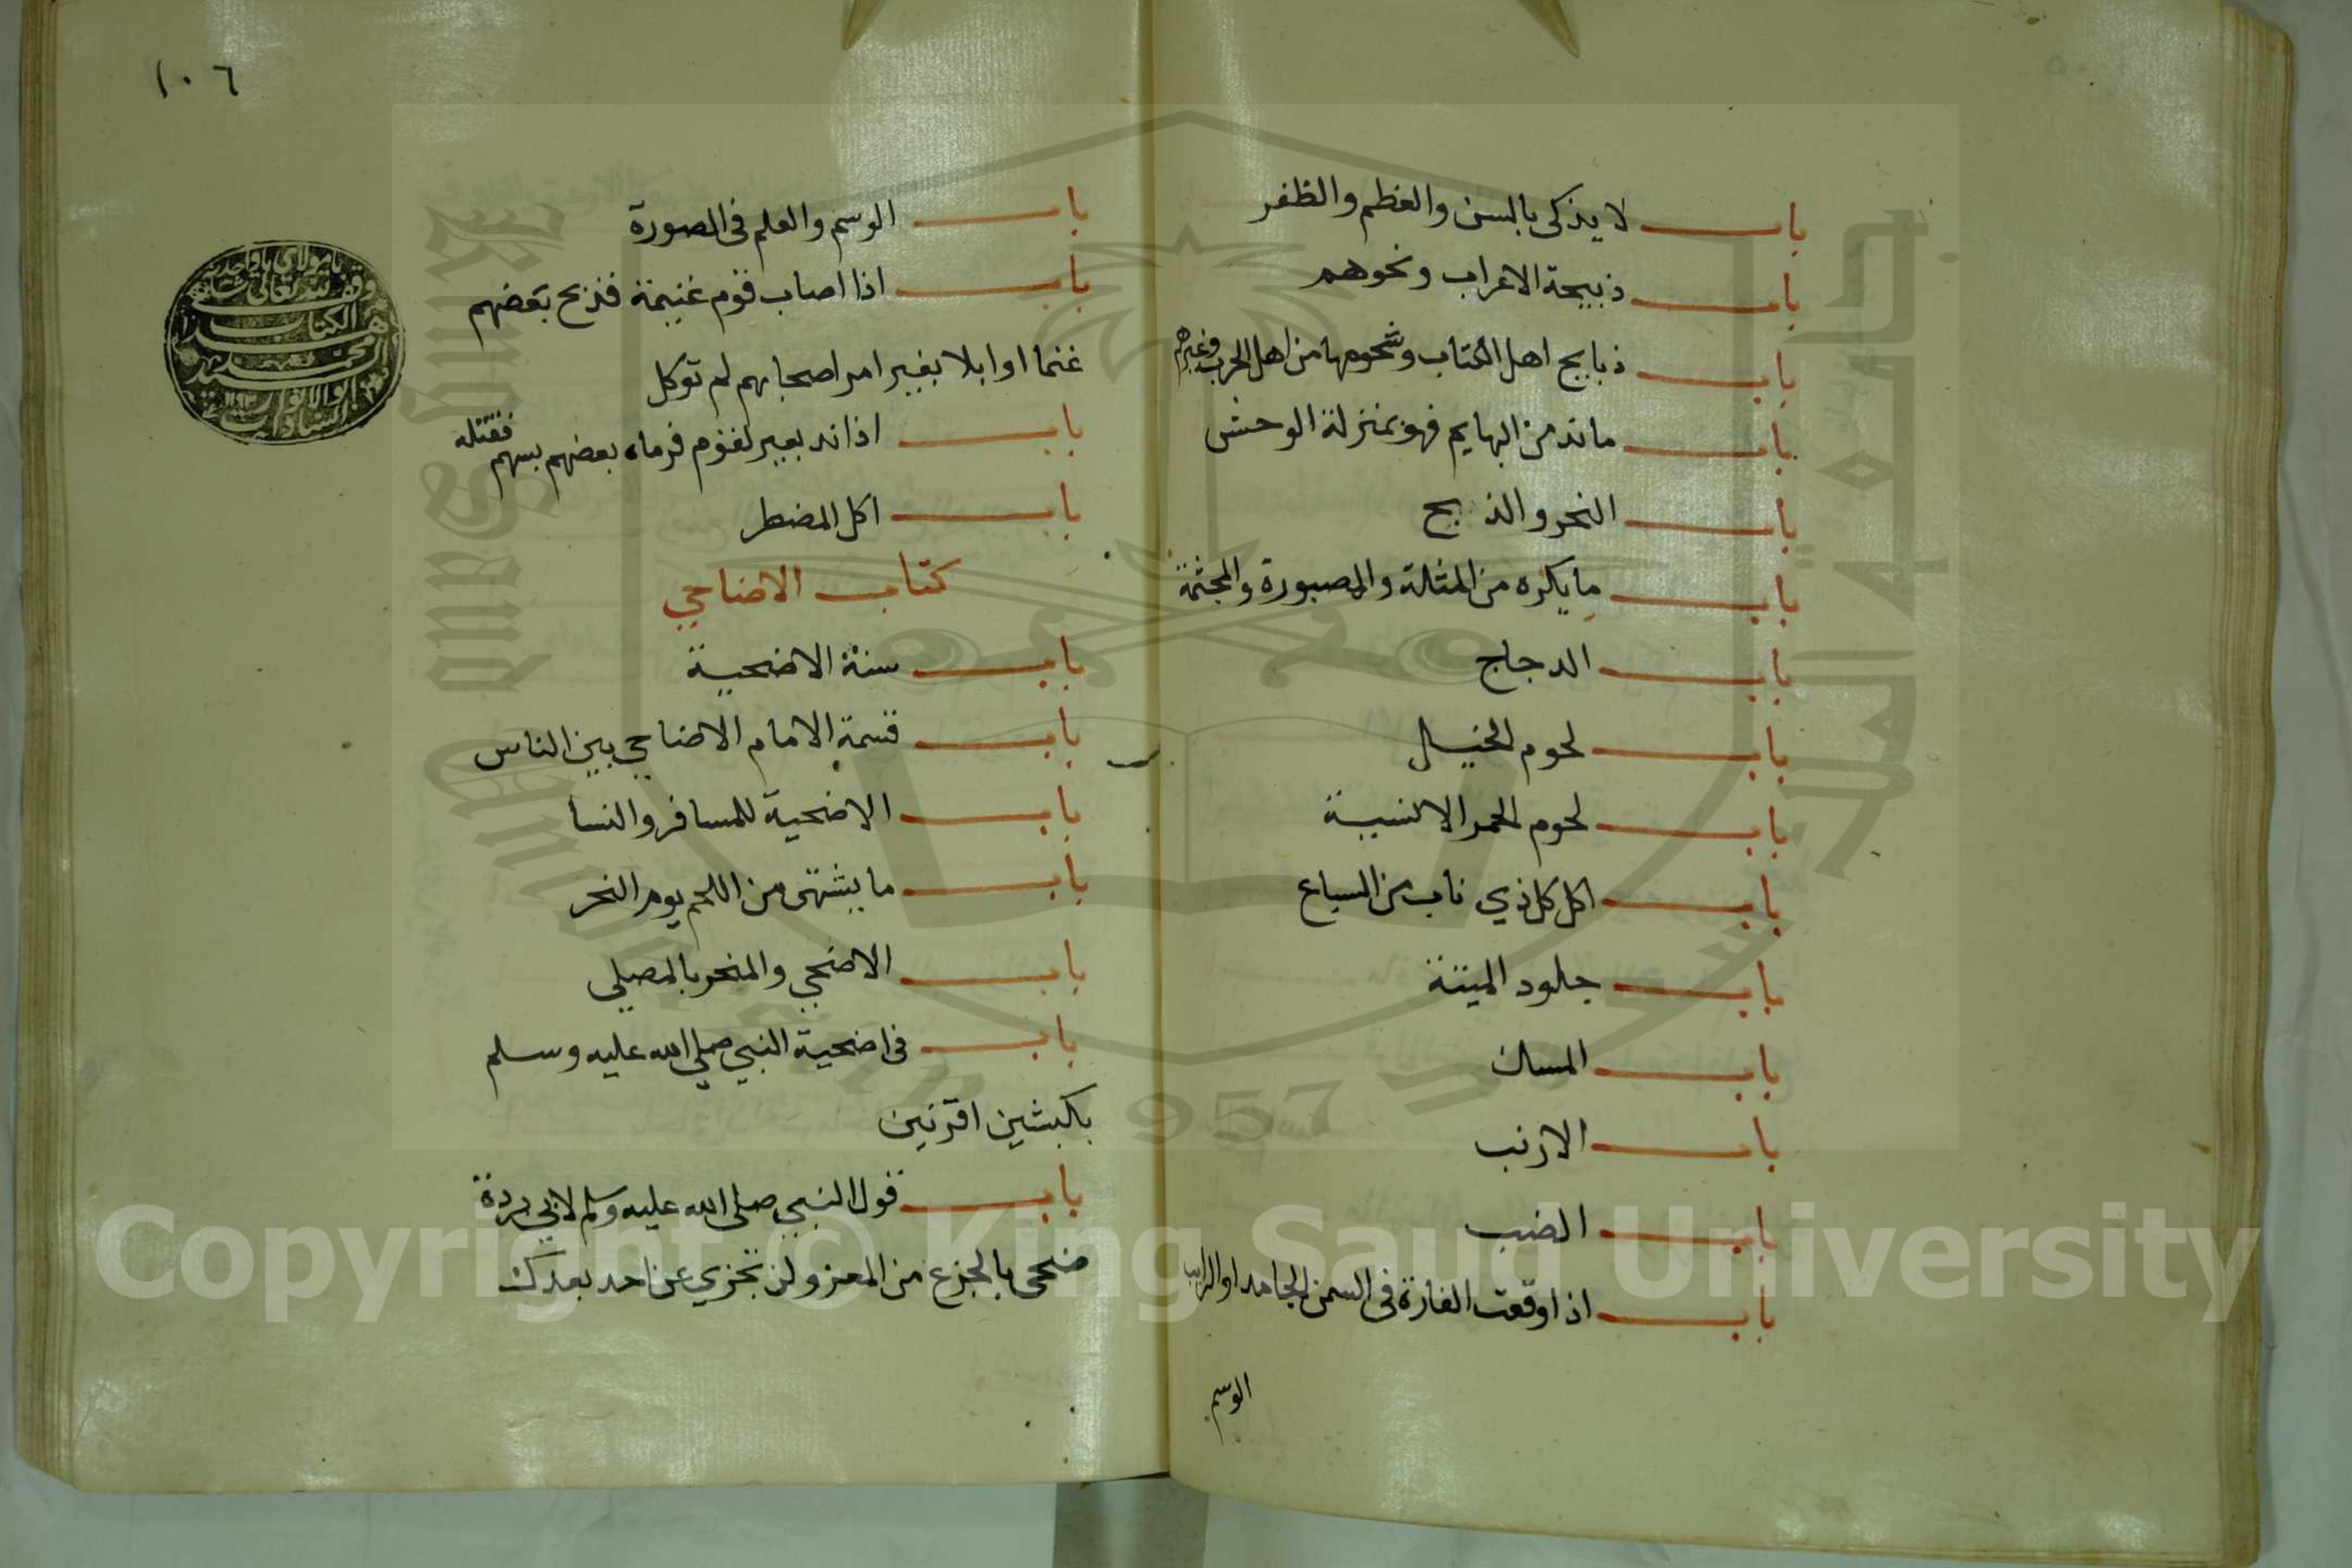 باب لا يذكى بالسن والعظم والظفر
باب ذبيحة الاعراب ونحوهم
باب ذبايح اهل الكتاب وشحومها من اهل الحرب وغيرهم
باب ماند من البهايم فهو بمنزلة الوحش
باب النحر والذبح
باب ما يكره من المثلة والمصبورة والمجثمة
باب الدجاج
باب لحوم الخيل
باب لحوم الحمر الانسية
باب اكل كل ذي ناب من السباع
باب جلود الميتة
باب المسك
باب الارنب
باب الضب
باب اذا وقعت الفارة في السمن الجامد او الذايب
الوسم
١٠٦
باب الوسم والعلم في الصورة
باب اذا اصاب قوم غنيمة فذبح بعضهم
غنما او ابلا بغير امر اصحابهم لم توكل
باب اذا ند بعير لقوم فرماه بعضهم بسهم فقتله
باب اكل المضطر
كتاب الاضاحي
باب سنة الاضحية
باب قسمة الامام الاضاحي بين الناس
باب الاضحية للمسافر والنسا
باب ما يشتهى من اللحم يوم النحر
باب الاضحي والمنحر بالمصلي
باب في اضحية النبي صلي الله عليه وسلم
بكبشين اقرنين
باب قول النبي صلى الله عليه وسلم لابي بردة
ضحى بالجزع من المعز ولن تجزي عن احد بعدك
وقف لله تعالى
هذا الكتاب
King Saud University
1957
Copyright © King Saud University